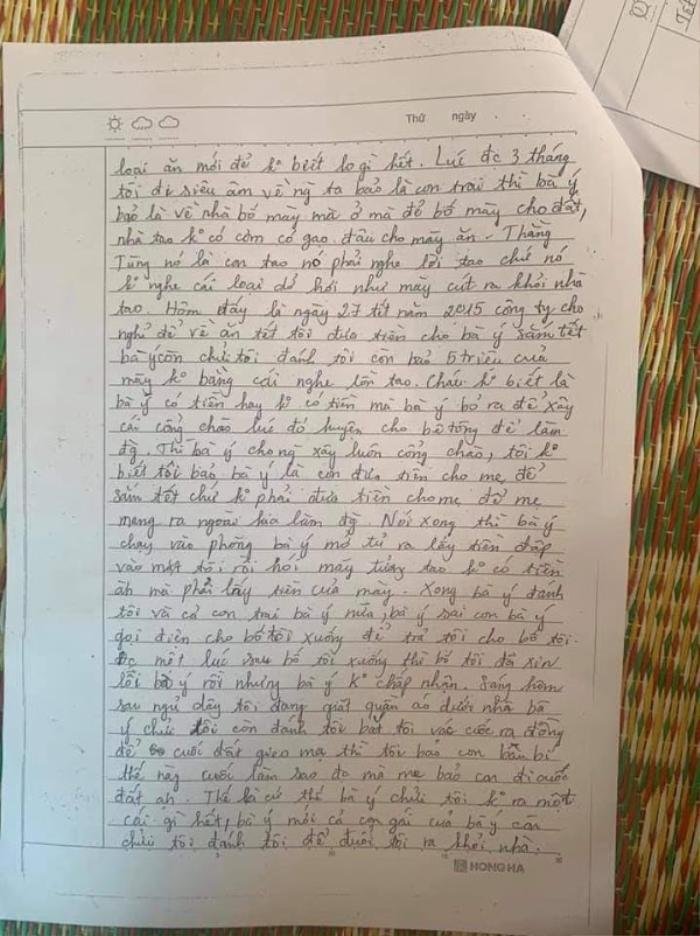 Thứ ngày
loại ăn mới đẻ k° biết lo gì hết. Lúc đc 3 tháng
tôi đi siêu âm về ng ta bảo là con trai thì bà ý
bảo là về nhà bố mày mà ở mà để bố mày cho đất,
nhà tao k° có cơm có gạo đâu cho mày ăn. Thằng
Tùng nó là con tao nó phải nghe lời tao chứ nó
k° nghe cái loại dở hơi như mày cút ra khỏi nhà
tao. Hôm đấy là ngày 27 tết năm 2015 công ty cho
nghỉ để về ăn tết tôi đưa tiền cho bà ý sắm tết
bà ý còn chửi tôi đánh tôi còn bảo 5 triệu của
mày k° bằng cái nghe lồn tao. Cháu k° biết là
bà ý có tiền hay k° có tiền mà bà ý bỏ ra để xây
cái cổng chào lúc đó huyện cho bê tông để làm
đg. Thì bà ý cho ng xây luôn cổng chào, tôi k°
biết tôi bảo bà ý là con đưa tiền cho mẹ để
sắm tết chứ k° phải đưa tiền cho mẹ để mẹ
mang ra ngoài kia làm đg. Nói xong thì bà ý
chạy vào phòng bà ý mở tủ ra lấy tiền đập
vào mặt tôi rồi hỏi mày tưởng tao k° có tiền
àh mà phải lấy tiền của mày. Xong bà ý đánh
tôi và cả con trai bà ý nữa, bà ý sai con bà ý
gọi điện cho bố tôi xuống để trả tôi cho bố tôi.
Đc một lúc sau bố tôi xuống thì bố tôi đã xin
lỗi bà ý rồi nhưng bà ý k° chấp nhận. Sáng hôm
sau ngủ dậy tôi đang giặt quần áo dưới nhà bà
ý chửi tôi còn đánh tôi bắt tôi vác cuốc ra đồng
để cuốc đất gieo mạ thì tôi bảo con bầu bí
thế này cuốc làm sao đc mà mẹ bảo con đi cuốc
đất ạh. Thế là cứ thế bà ý chửi tôi k° ra một
cái gì hết, bà ý mới cả con gái của bà ý còn
chửi tôi đánh tôi để đuổi tôi ra khỏi nhà.
HONG HA